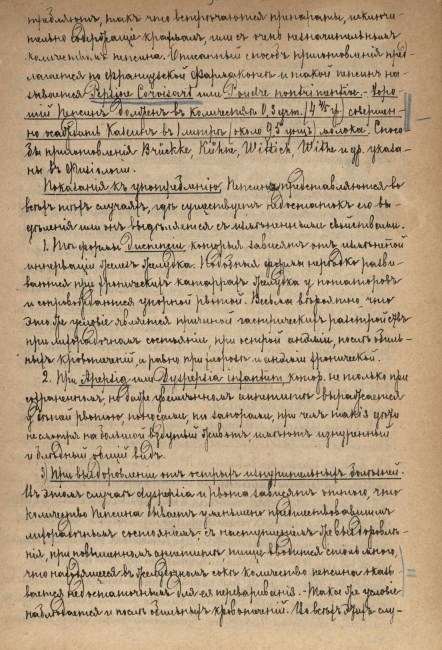 требляют, такъ что встрѣчаются препараты, исключи-
тельно содержащіе крахмалъ, или съ очень незначительнымъ
количествомъ пепсина. Описанный способъ приготовленія пред-
лагается по французской Фармакопеѣ и такой пепсинъ на-
зывается Pepsine Corvisart или Poudre nutrimentive. Хоро-
шій Пепсинъ долженъ въ количествѣ 0,3 грм. совершен-
но осаждать Казеинъ въ 1 литрѣ (около 93 унц.) молока. Спосо-
бы приготовленія Brücke, Kühne, Wittich, Witte и др. указа-
ны въ Физіологіи.
Показанія къ употребленію, Пепсина представляются во
всѣхъ тѣхъ случаяхъ, гдѣ существуетъ недостатокъ его вы-
дѣленія или онъ выдѣляется съ измѣненными свойствами.
1. Тѣ формы диспепсіи, которыя зависятъ отъ измѣненной
иннерваціи железъ желудка. Подобныя формы нерѣдко разви-
ваются при хроническихъ катаррахъ желудка у потаторовъ
и сопровождаются упорной рвотой. Весьма вѣроятно, что
это же условіе является причиной гастрическихъ разстройствъ
при лихорадочномъ состояніи, при острой анэміи, послѣ обиль-
ныхъ кровотеченій, а равно при хлорозѣ и анэміи хронической.
2. При Apepsia или Dyspepsia infantum, котор. не только при
сохраненномъ, но даже увеличенномъ аппетитѣ выражается
рвотою, поносами, но запорами, при чемъ такіе
несмотря на большой вздутый животъ имѣютъ изнуренный
и блѣдный общій видъ.
3) При выздоровленіи отъ острыхъ изнурительныхъ болѣзней.
Въ этомъ случаѣ dyspepsia и рвота зависятъ оттого, что
количество Пепсина бываетъ уменьшено предшествовавшимъ
лихорадочнымъ состояніемъ; съ наступленіемъ же выздоровле-
нія, при повышенномъ аппетитѣ, пищи вводится столь много,
что находящееся въ желудочномъ сокѣ количество пепсина оказы-
вается недостаточнымъ для ея перевариванія. - Такое же условіе
наблюдается и послѣ обильныхъ кровотеченій. Во всѣхъ этихъ слу-